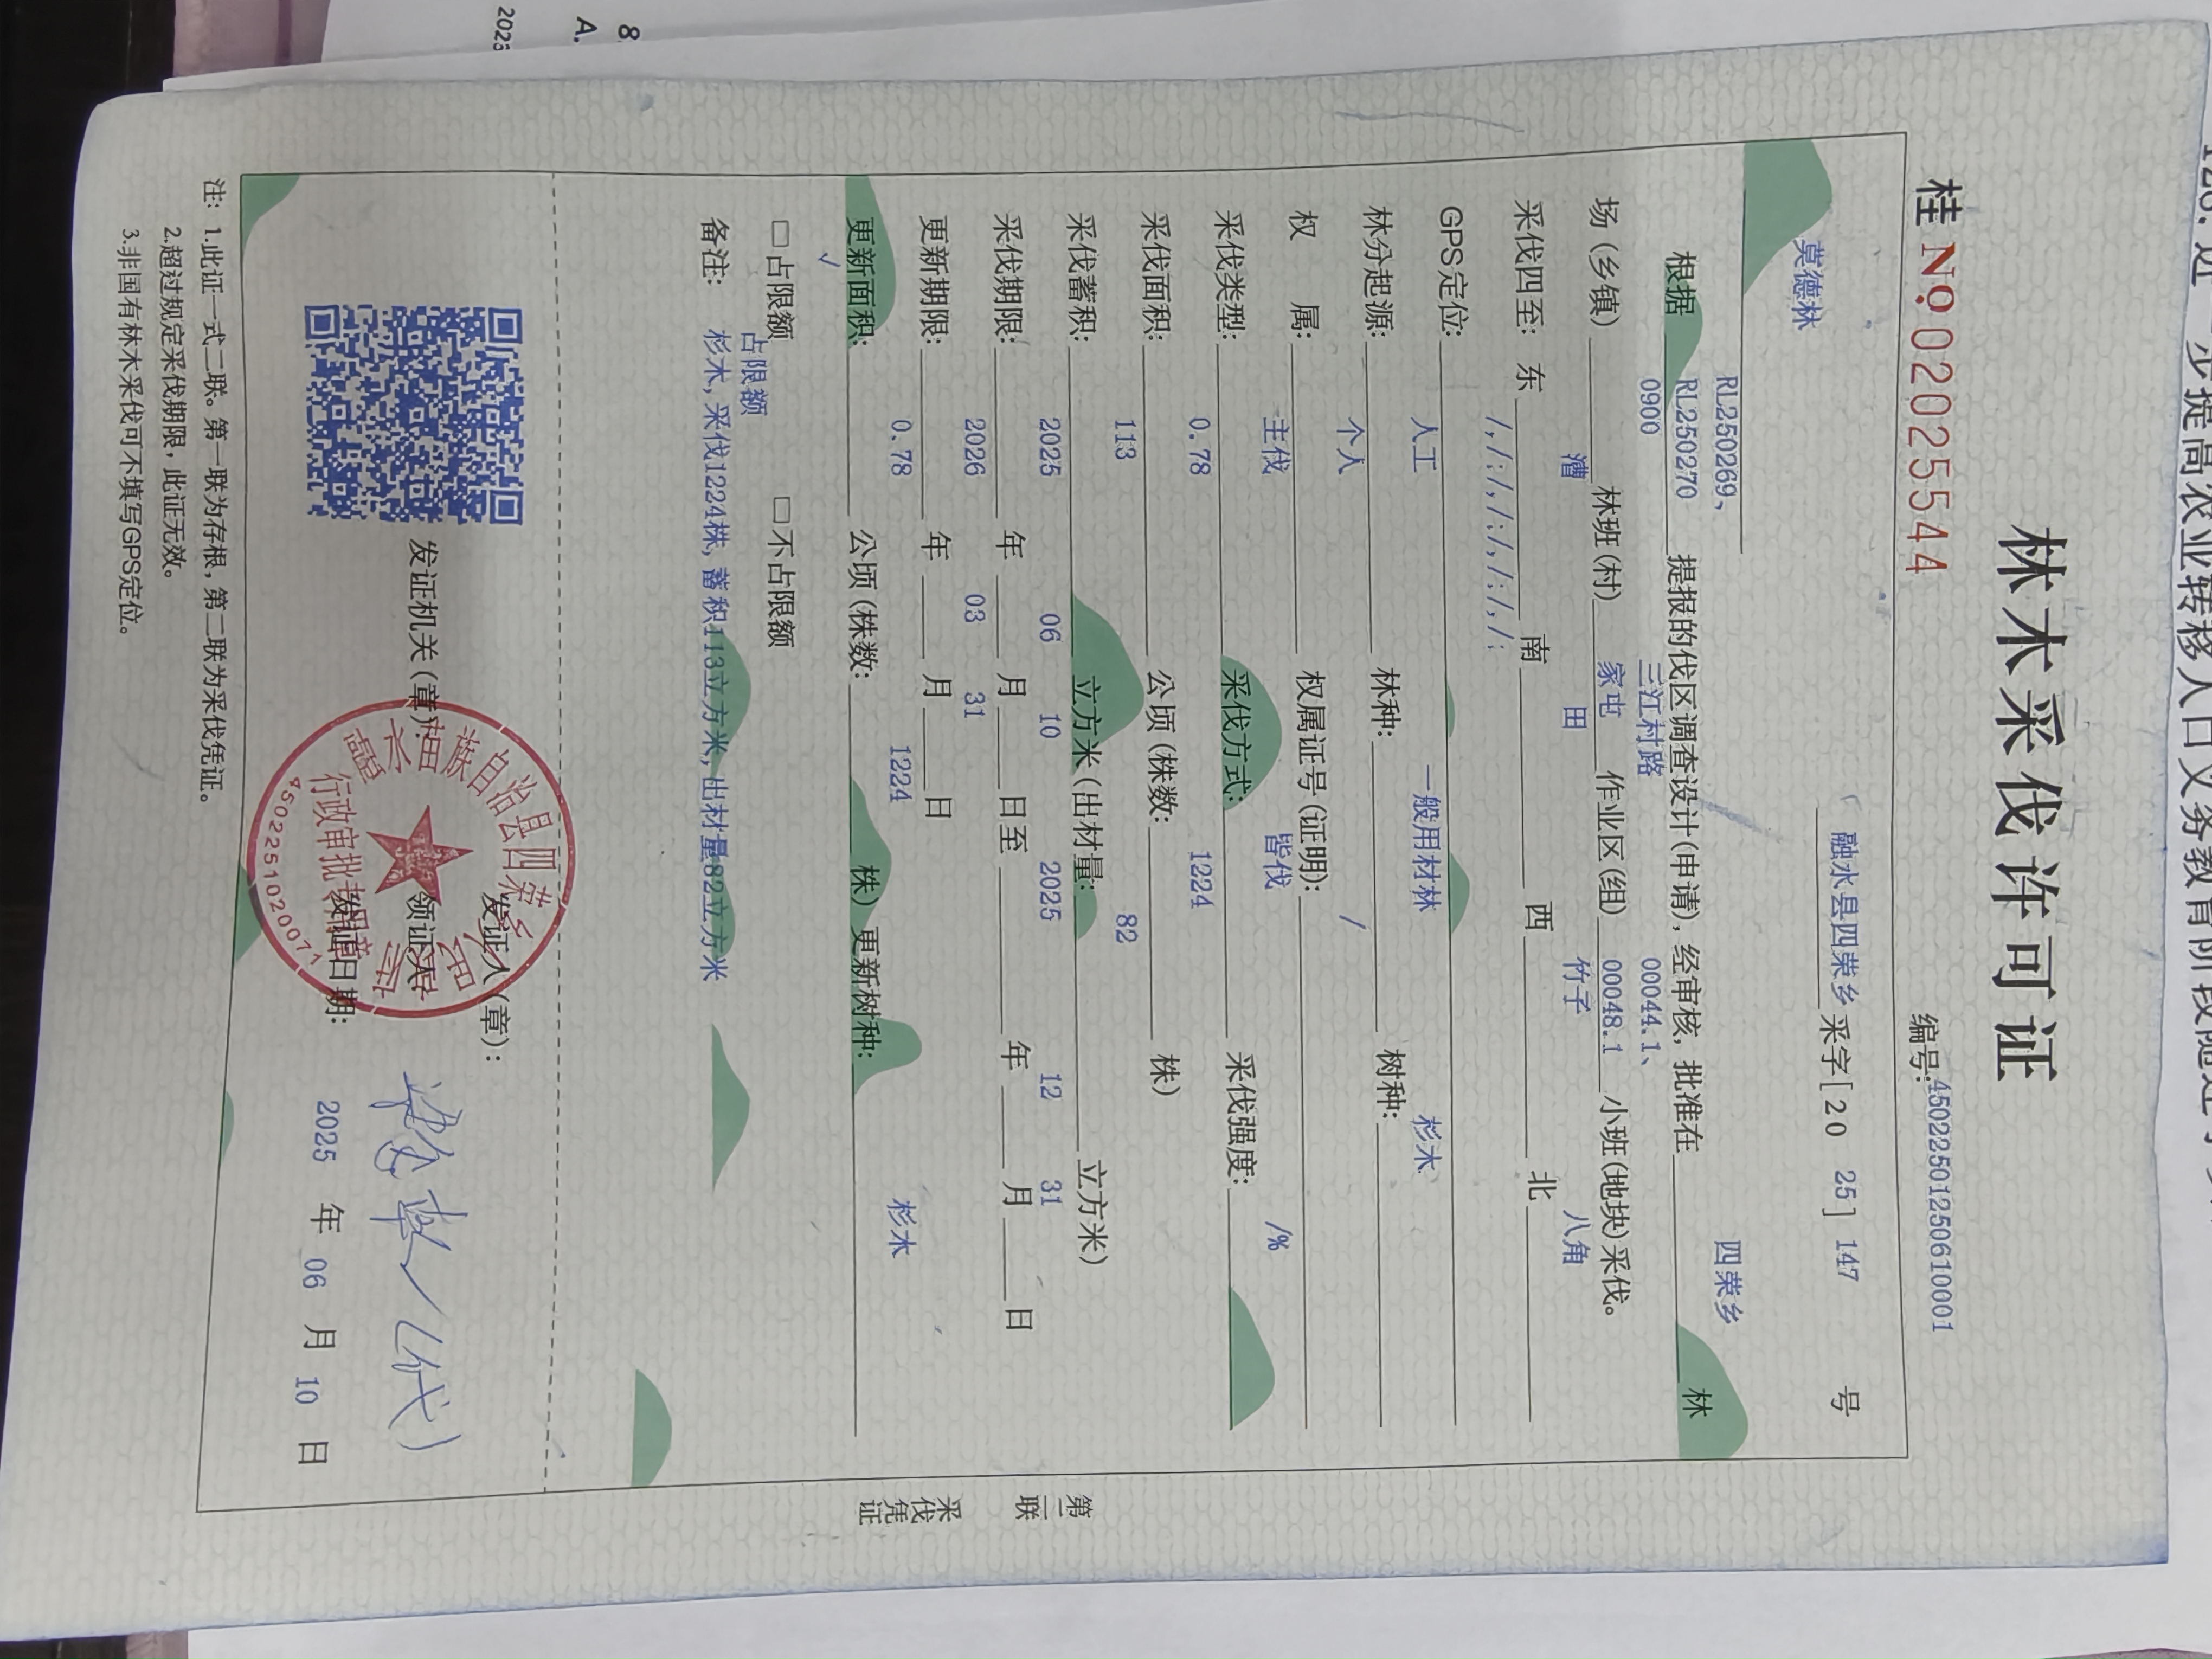 林木采伐许可证
编号:450225012506100001
桂 No.02025544
融水县四荣乡采字[2025]147号
莫德林
RL250269、
根据 RL250270 提报的伐区调查设计(申请), 经审核, 批准在 四荣乡 林
0900 三江村路 00044.1、
场(乡镇) 林班(村) 家屯 作业区(组) 00048.1 小班(地块)采伐。
采伐四至: 东 漕 南 田 西 竹子 北 八角
GPS定位: /,/:/,/:/,/:/,/:
林分起源: 人工 林种: 一般用材林 树种: 杉木
权 属: 个人 权属证号(证明): /
采伐类型: 主伐 采伐方式: 皆伐 采伐强度: /%
采伐面积: 0.78 公顷(株数: 1224 株)
采伐蓄积: 113 立方米(出材量: 82 立方米)
采伐期限: 2025 年 06 月 10 日至 2025 年 12 月 31 日
更新期限: 2026 年 03 月 31 日
更新面积: 0.78 公顷(株数: 1224 株) 更新树种: 杉木
√
□占限额 □不占限额
占限额
备注: 杉木, 采伐1224株, 蓄积113立方米, 出材量82立方米
发证人(章):
发证机关(章):
领证人
(代)
发证日期: 2025 年 06 月 10 日
融水苗族自治县四荣乡
行政审批专用章
4502251020071
注: 1.此证一式二联。第一联为存根, 第二联为采伐凭证。
2.超过规定采伐期限, 此证无效。
3.非国有林木采伐可不填写GPS定位。
第二联
采伐凭证
8
A.
2023